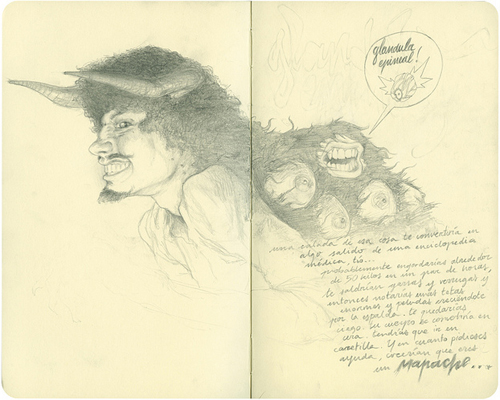 glandula
epineal!
una calada de esa cosa te convertiría en
algo salido de una enciclopedia
médica, tío...
probablemente engordarías alrededor
de 50 kilos en un par de horas,
te saldrían garras y verrugas y
entonces notarías unas tetas
enormes y peludas creciéndote
por la espalda. te quedarías
ciego. tu cuerpo se convertiría en
cera. tendrías que ir en
carretilla. Y en cuanto pidieses
ayuda, creerían que eres
un mapache...